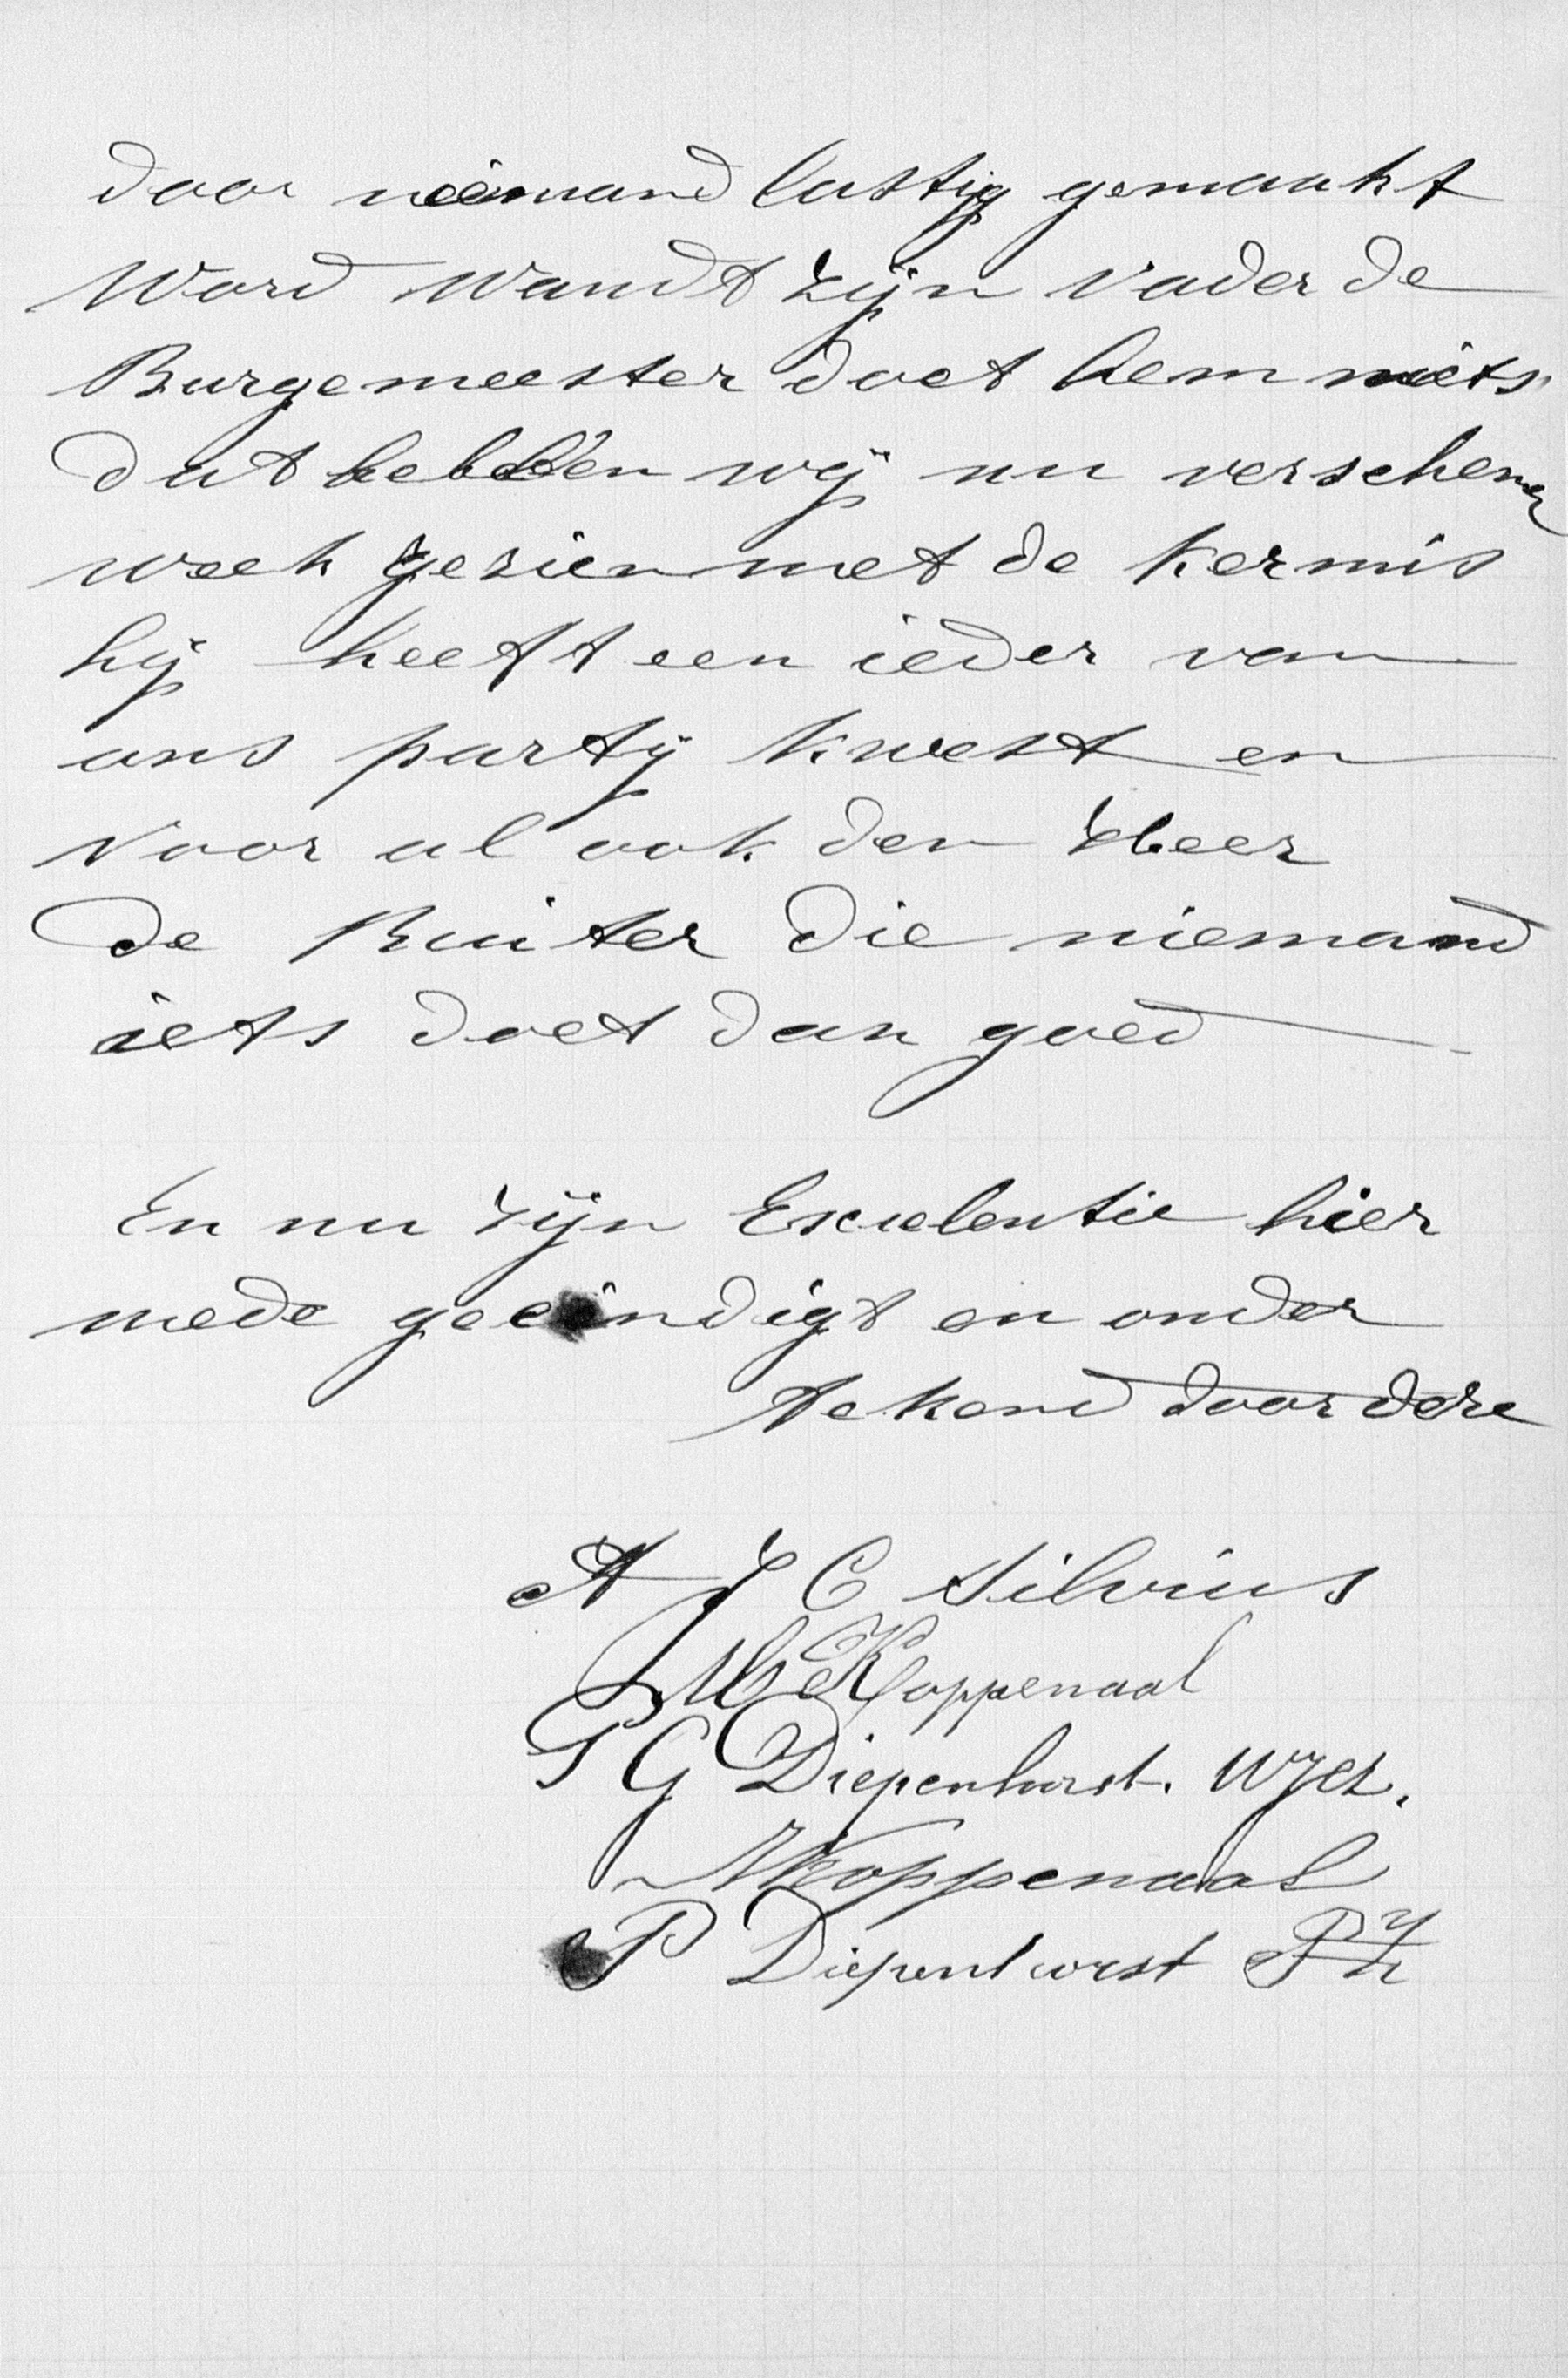 door niemand lastig gemaakt
Word Wandt Zijn Vader de
Burgemeester doet hem niets
dat hebben wij nu verschenen
week gezien met de Kermis
hij heeft een ieder van
ons partij Kwest en
Voor al ook den Heer
de Ruiter die niemand
iets doet dan goed
En nu Zijn Exculentie hier
mede geeindigt en onder
tekend door deze
A J C Silvius
Koppenaal
P G Diepenhorst. WJez.
Koppenaal
P Diepenhorst Pz